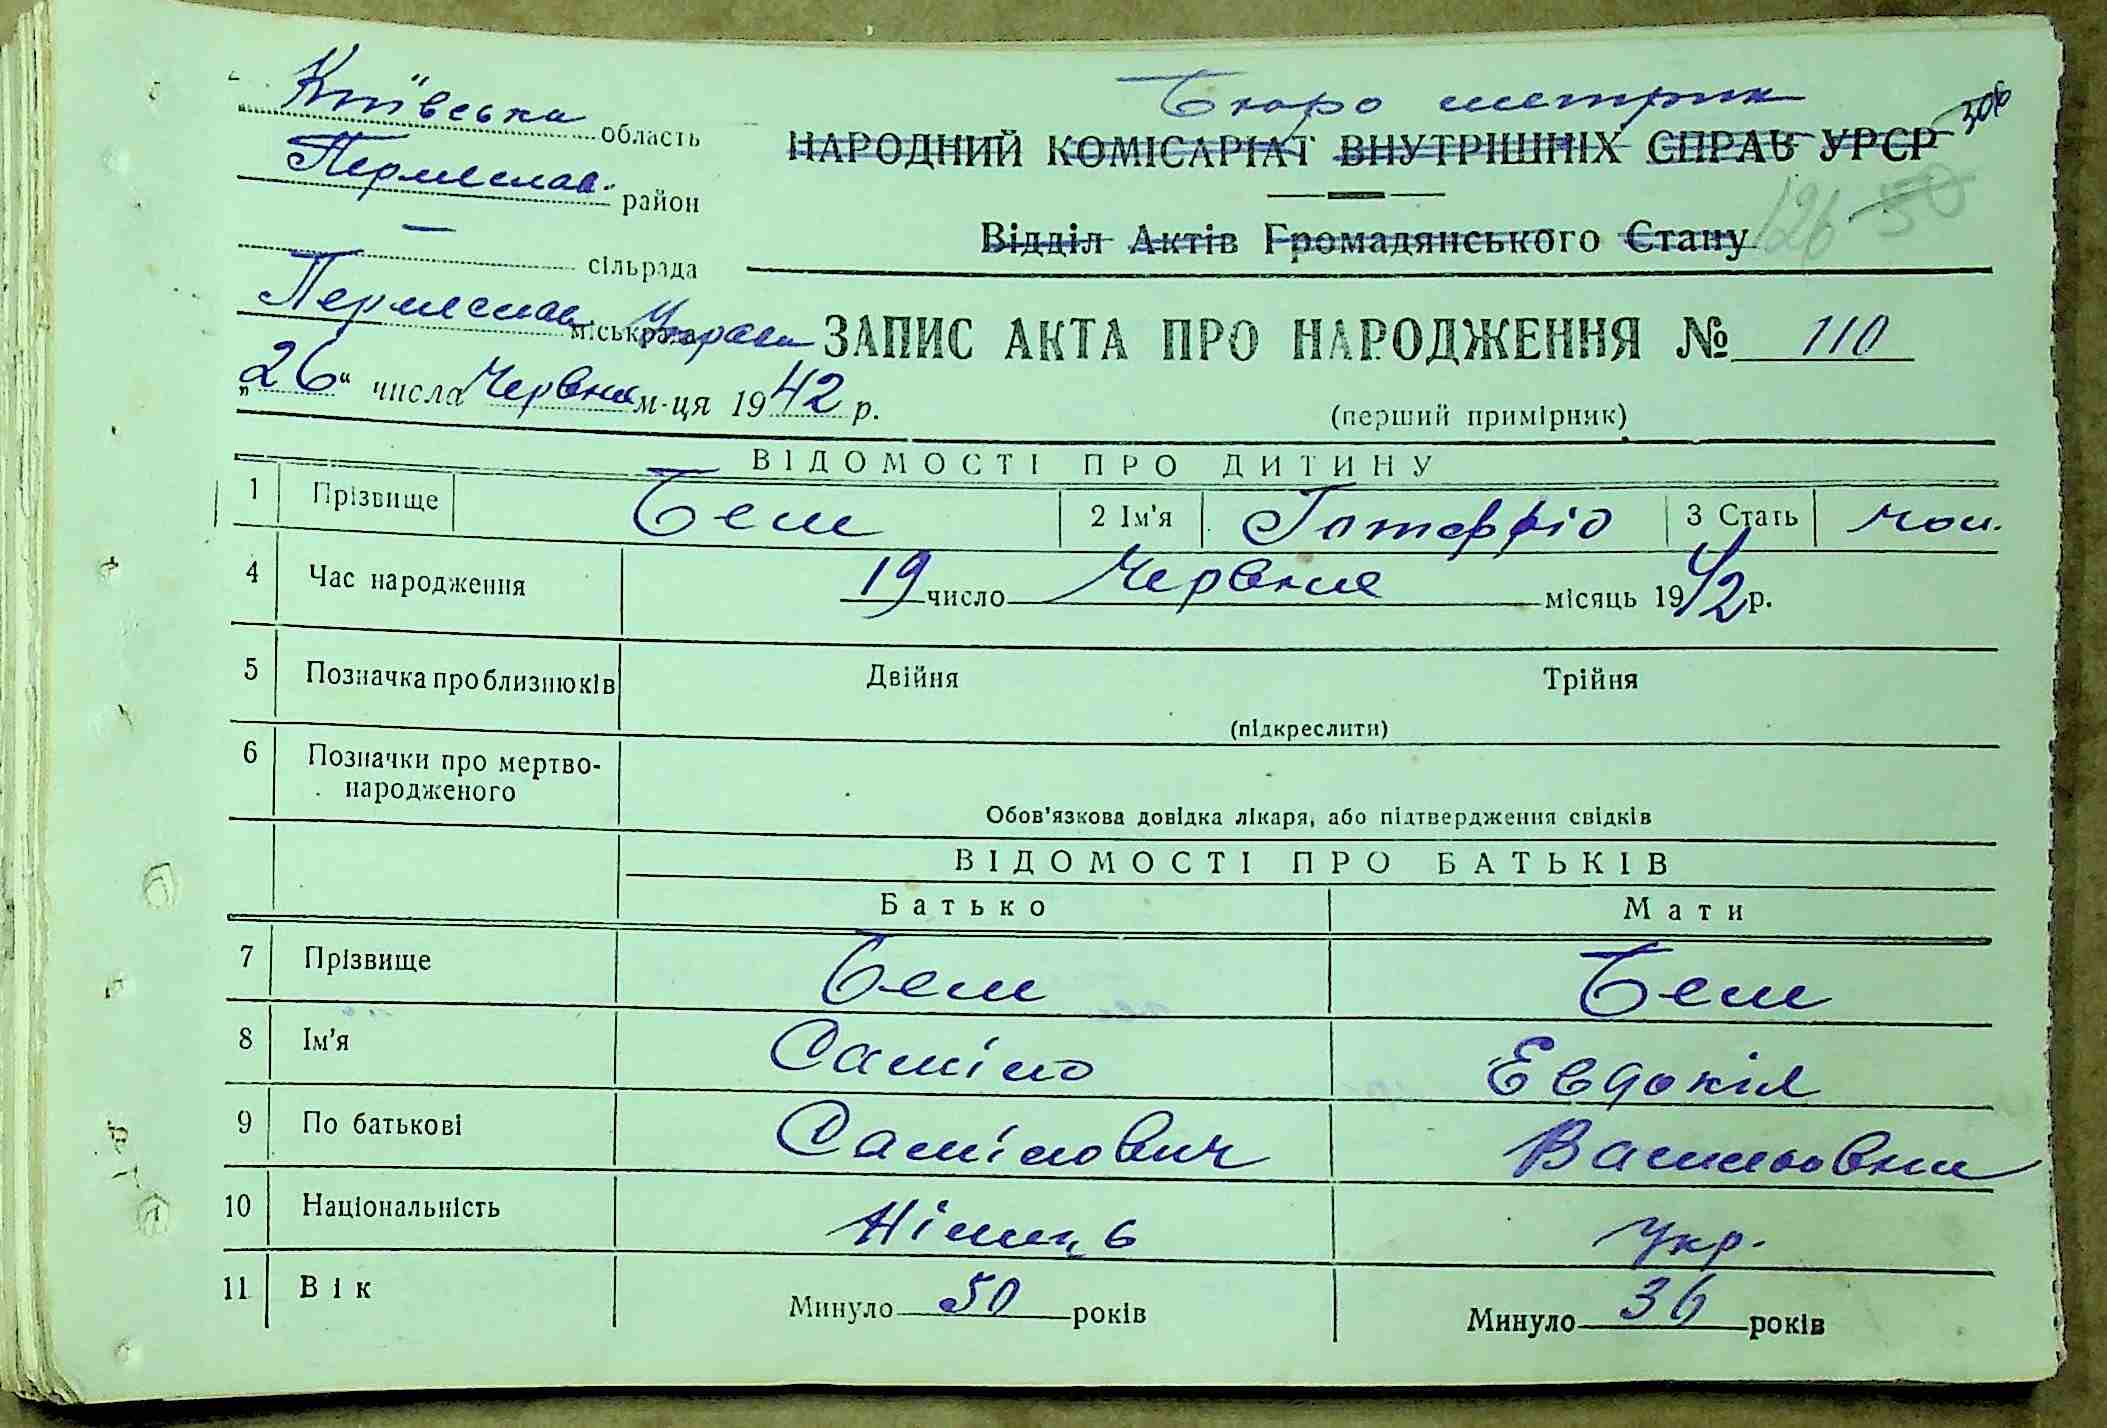 Київська область
Бюро метрик
Переяслав. район
НАРОДНИЙ КОМІСАРІАТ ВНУТРІШНІХ СПРАВ УРСР
306
126 50
— сільрада
Відділ Актів Громадянського Стану
Переяслав. міськрада Управа
ЗАПИС АКТА ПРО НАРОДЖЕННЯ № 110
„26“ числа Червня м-ця 1942 р.
(перший примірник)
ВІДОМОСТІ ПРО ДИТИНУ
1 Прізвище Бем 2 Ім'я Готофрід 3 Стать чол.
4 Час народження 19 число Червня місяць 1942 р.
5 Позначка про близнюків Двійня Трійня
(підкреслити)
6 Позначки про мертво-
народженого
Обов'язкова довідка лікаря, або підтвердження свідків
ВІДОМОСТІ ПРО БАТЬКІВ
Батько Мати
7 Прізвище Бем Бем
8 Ім'я Саміло Евдокія
9 По батькові Самілович Васильовна
10 Національність Німець Укр.
11 Вік Минуло 50 років Минуло 36 років